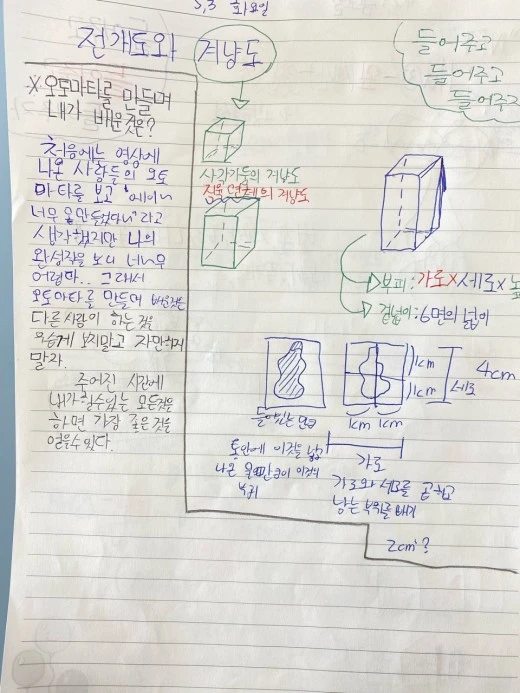 5,3 화요일
전개도와 겨냥도
들어주고
들어주고
들어주고
※오토마타를 만들며
내가 배운것은?
처음에는 영상에
나온 사람들의 오토
마타를 보고 '에이~
너무 못만들었다~'라고
생각했지만 나의
완성작을 보니 너~무
어렵다.. 그래서
오토마타를 만들며 배운것은
다른 사람이 하는 것을
우습게 보지말고 자만하지
말자.
주어진 시간에
내가 할수있는 모든것을
하면 가장 좋은 것을
얻을수 있다.
사각기둥의 겨냥도
직육면체의 겨냥도
부피:가로×세로×높
겉넓이:6면의 넓이
1cm
1cm
세로
4cm
1cm 1cm
가로
들어있는 만큼
통안에 이것을 넣고
나온 물만큼이 이것의
부피
가로와 세로를 곱하고
남는 부위를 빼기
2cm²?